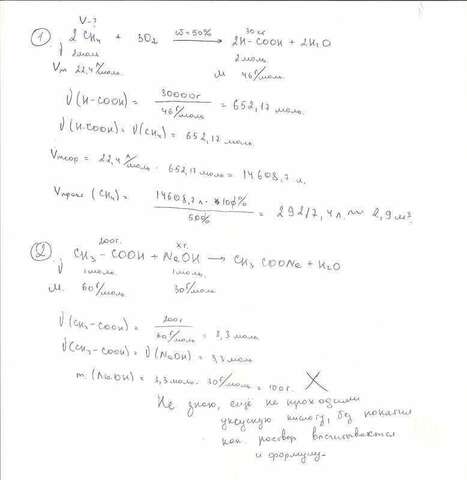 V-?
30 кг
① 2CH₄ + 3O₂ ω=50% → 2H-COOH + 2H₂O
ν 2моль 2моль
Vm 22,4 л/моль. M 46 г/моль.
ν(H-COOH) = 30000г / 46 г/моль = 652,17 моль.
ν(H-COOH) = ν(CH₄) = 652,17 моль.
Vтеор = 22,4 л/моль · 652,17 моль = 14608,7 л.
Vпракт (CH₄) = 14608,7 л · 100% / 50% = 29217,4 л 2,9 м³.
200г. xг.
② CH₃-COOH + NaOH → CH₃COONa + H₂O
ν 1моль 1моль
M. 60 г/моль 30 г/моль
ν(CH₃-COOH) = 200г / 60 г/моль = 3,3 моль
ν(CH₃-COOH) = ν(NaOH) = 3,3 моль
m(NaOH) = 3,3 моль · 30 г/моль = 100г.
Не знаю, ещё не проходили
уксусную кислоту, без понятия
как раствор высчитываются
и формулу